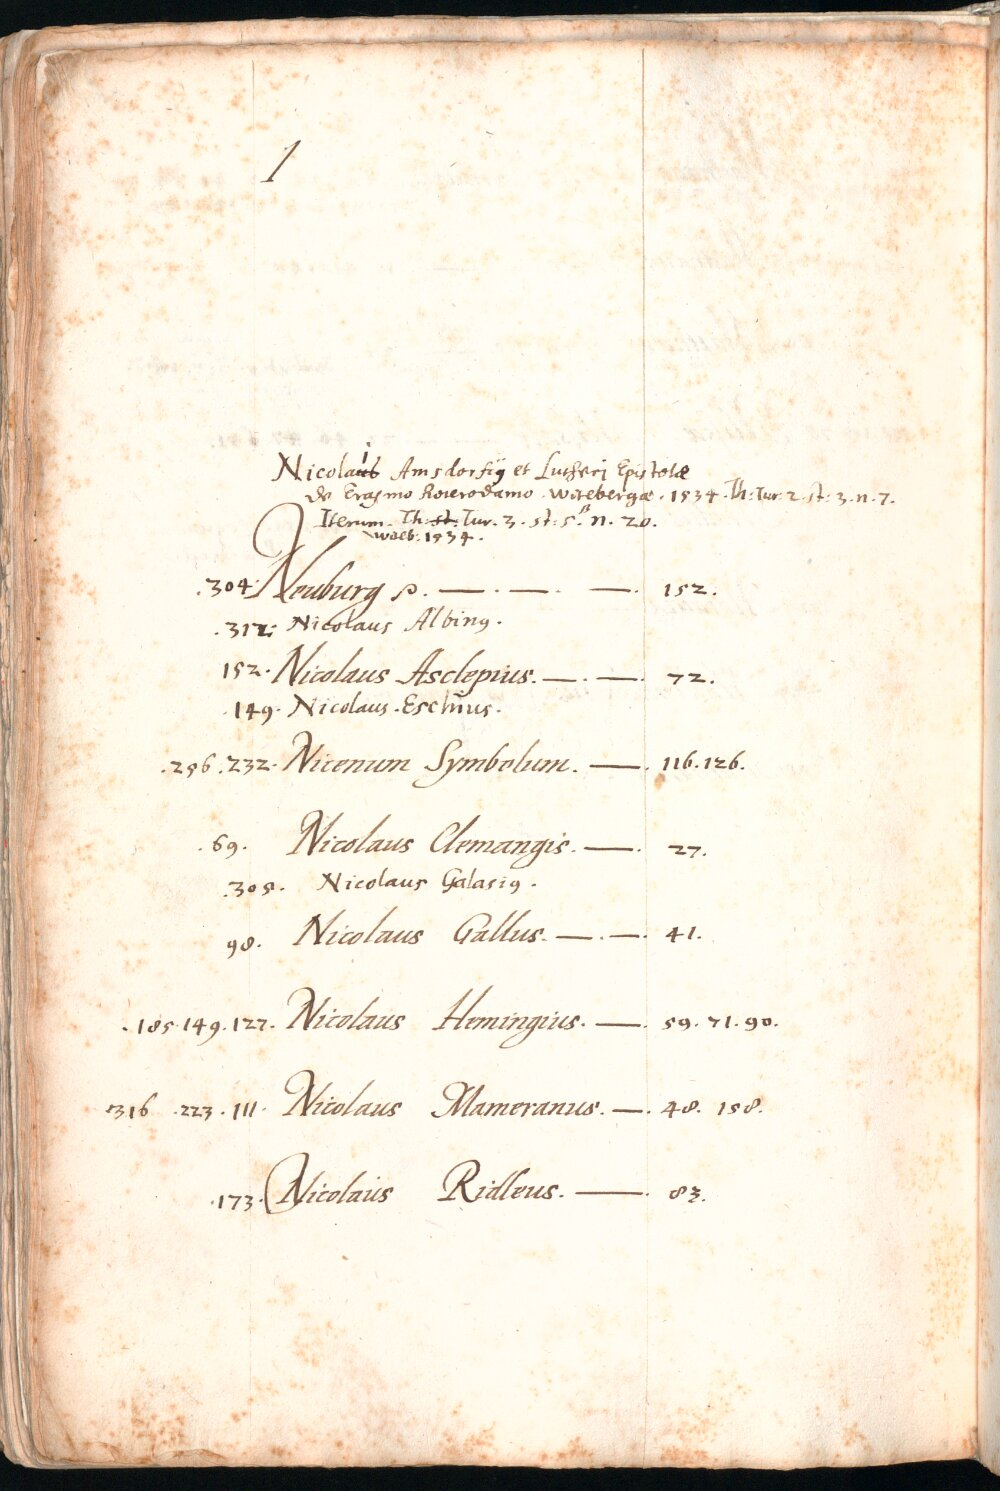 1
Nicolai Amsdorfij et Lutheri Epistolæ
de Erasmo Roterodamo. Witebergæ. 1534. Th: Tur: 2. st: 3. n. 7.
Iterum. Th: st: Tur. 3. st: 5. n. 20.
Witeb: 1534.
.304. Neuburg — . — . — . 152.
.312: Nicolaus Albinus.
152. Nicolaus Asclepius. — . — . 72.
.149. Nicolaus. Eschius.
.256.232. Nicenum Symbolum. — . 116.126.
.69. Nicolaus Clemangis. — . 27.
.305. Nicolaus Galasius.
98. Nicolaus Gallus. — . — . 41.
.185.149.127. Nicolaus Hemingius. — . 59.71.90.
316 .223.111. Nicolaus Mameranus. — . 48. 158.
.173. Nicolaus Ridleus. — . 83.